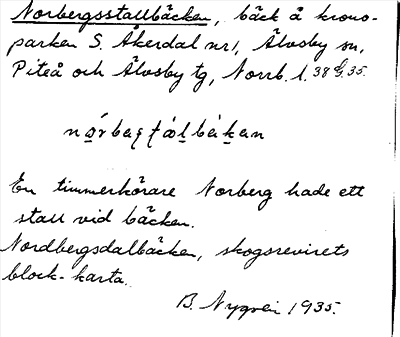 Norbergsstallbäcken, bäck å krono-
parken S. Åkerdal nr 1, Älvsby sn,
Piteå och Älvsby tg, Norrb. l. 38 G. 35.
En timmerkörare Norberg hade ett
stall vid bäcken.
Nordbergsdalbäcken, skogsrevirets
block-karta.
B. Nygren 1935.